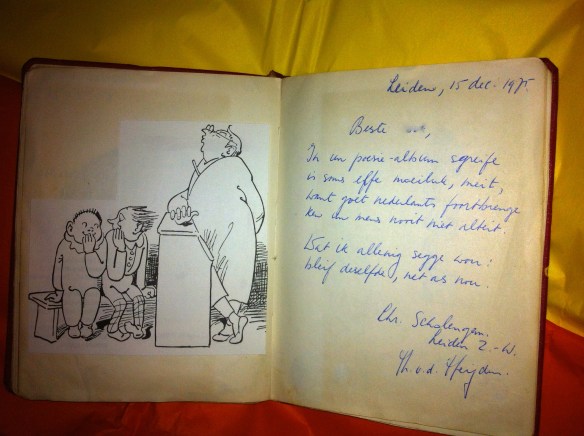 Leiden, 15 dec. 1975.
Beste
In un poesie-album sgreife
is soms effe moeiluk, meit,
want goet nederlants foortbrenge
ken un mens nooit niet alteit.
Wat ik allenig segge wou:
bleif deselfde, net as nou.
Chr. Scholengem.
Leiden Z.-W.
Th. v.d.